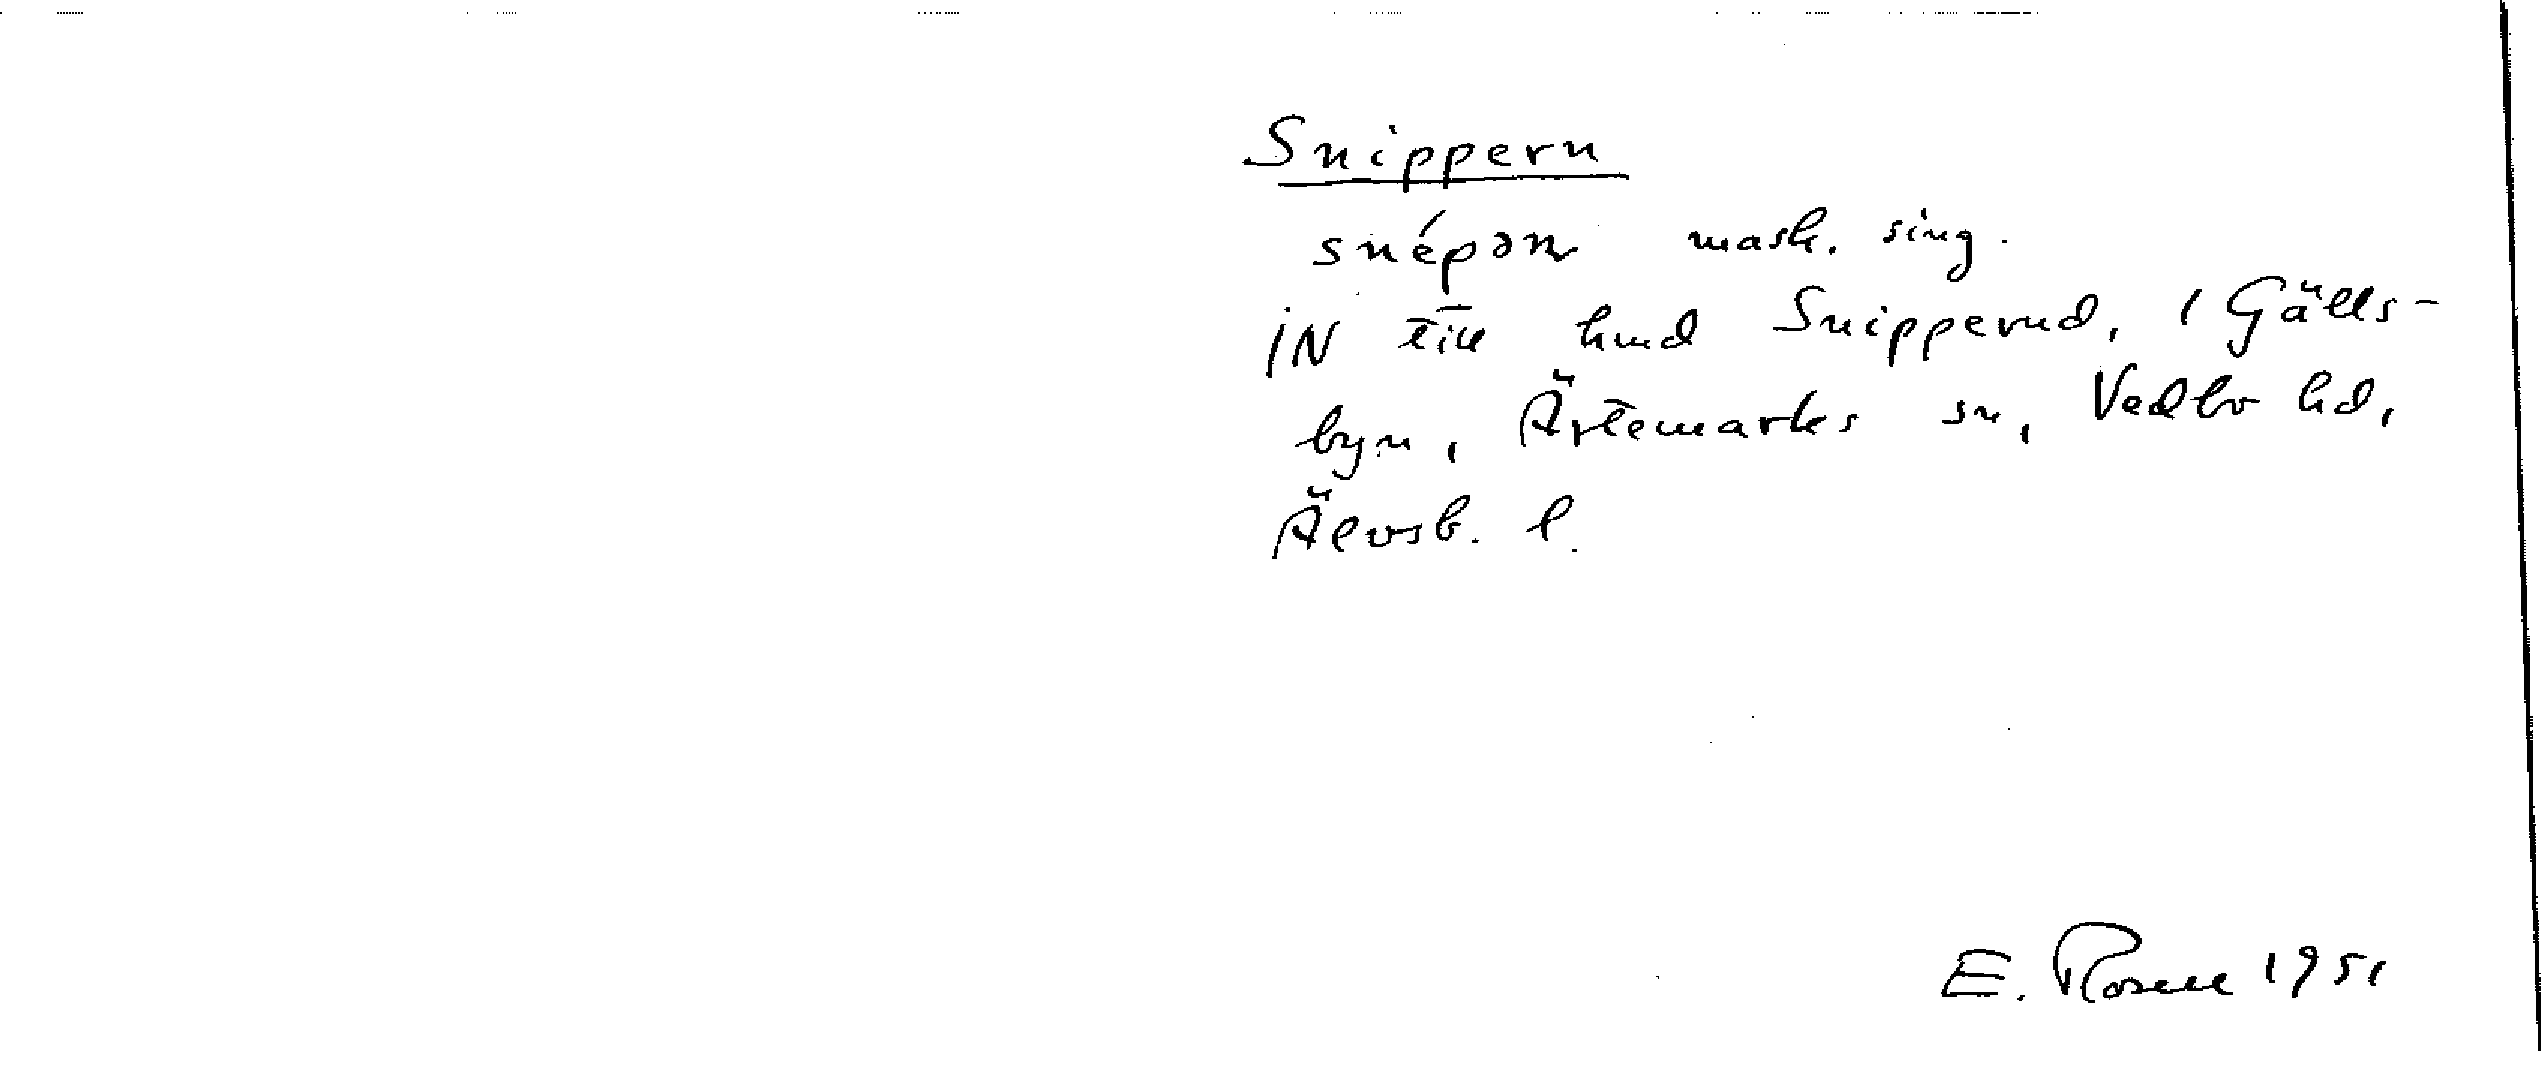 Snippern
snépən mask. sing.
IN till hmd Snipperud, 1 Gälls-
byn, Ärtemarks sn, Vedbo hd,
Älvsb. l.
E. Rosell 1951